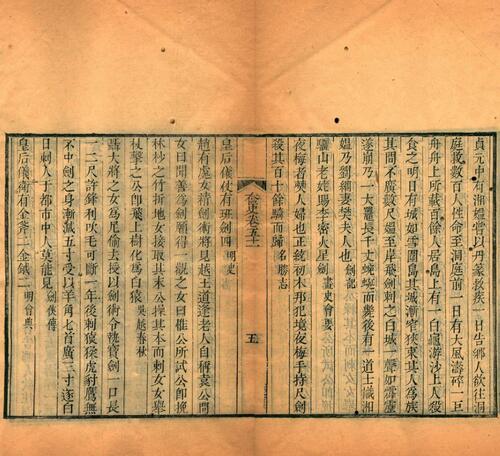 貞元中有湘媼嘗以丹篆救疾一日告鄉人欲往洞
庭救數百人性命至洞庭前一日有大風濤碎一巨
舟舟上所載百餘人居島上有一白鼉游沙上人殺
食之明日有城如雪圍島其城漸窄狹束其人為族
其間不廣數尺媼至岸飛劍刺之白城一聲如霹靂
遂崩乃一大鼉長千丈蜿蜒而斃後有一道士識湘
媼乃劉綱妻樊夫人也
驪山老姥賜李密火星劍
夜梅者僰人婦也正統初木邦犯境夜梅手持尺劍
殺其百十餘騎而歸名勝志
皇后儀仗有班劍四明史
奩史卷五十一
五
趙有處女精劍術將見越王道逢老人自稱袁公問
女曰聞善為劍願得一觀之女曰惟公所試公即挽
林杪之竹折地女接取其末公操其本而刺女女舉
杖擊之公即飛上樹化為白猿吳越春秋
聶大將之女為尼偷去後以劍術令執寶劍一口長
一二尺許鋒利吹毛可斷一年後刺猿猱虎豹鷹無
不中劍之身漸減五寸受以羊角七首廣三寸遂白
日刺人于都市中人莫能見劍俠傳
皇后儀衛有金斧二金鉞二明會典